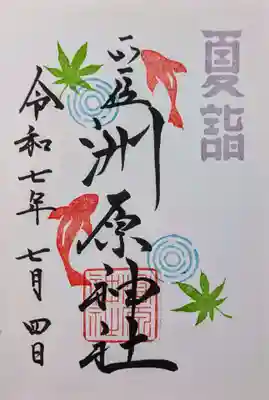 夏詣
正一位
洲原神社
令和七年七月四日